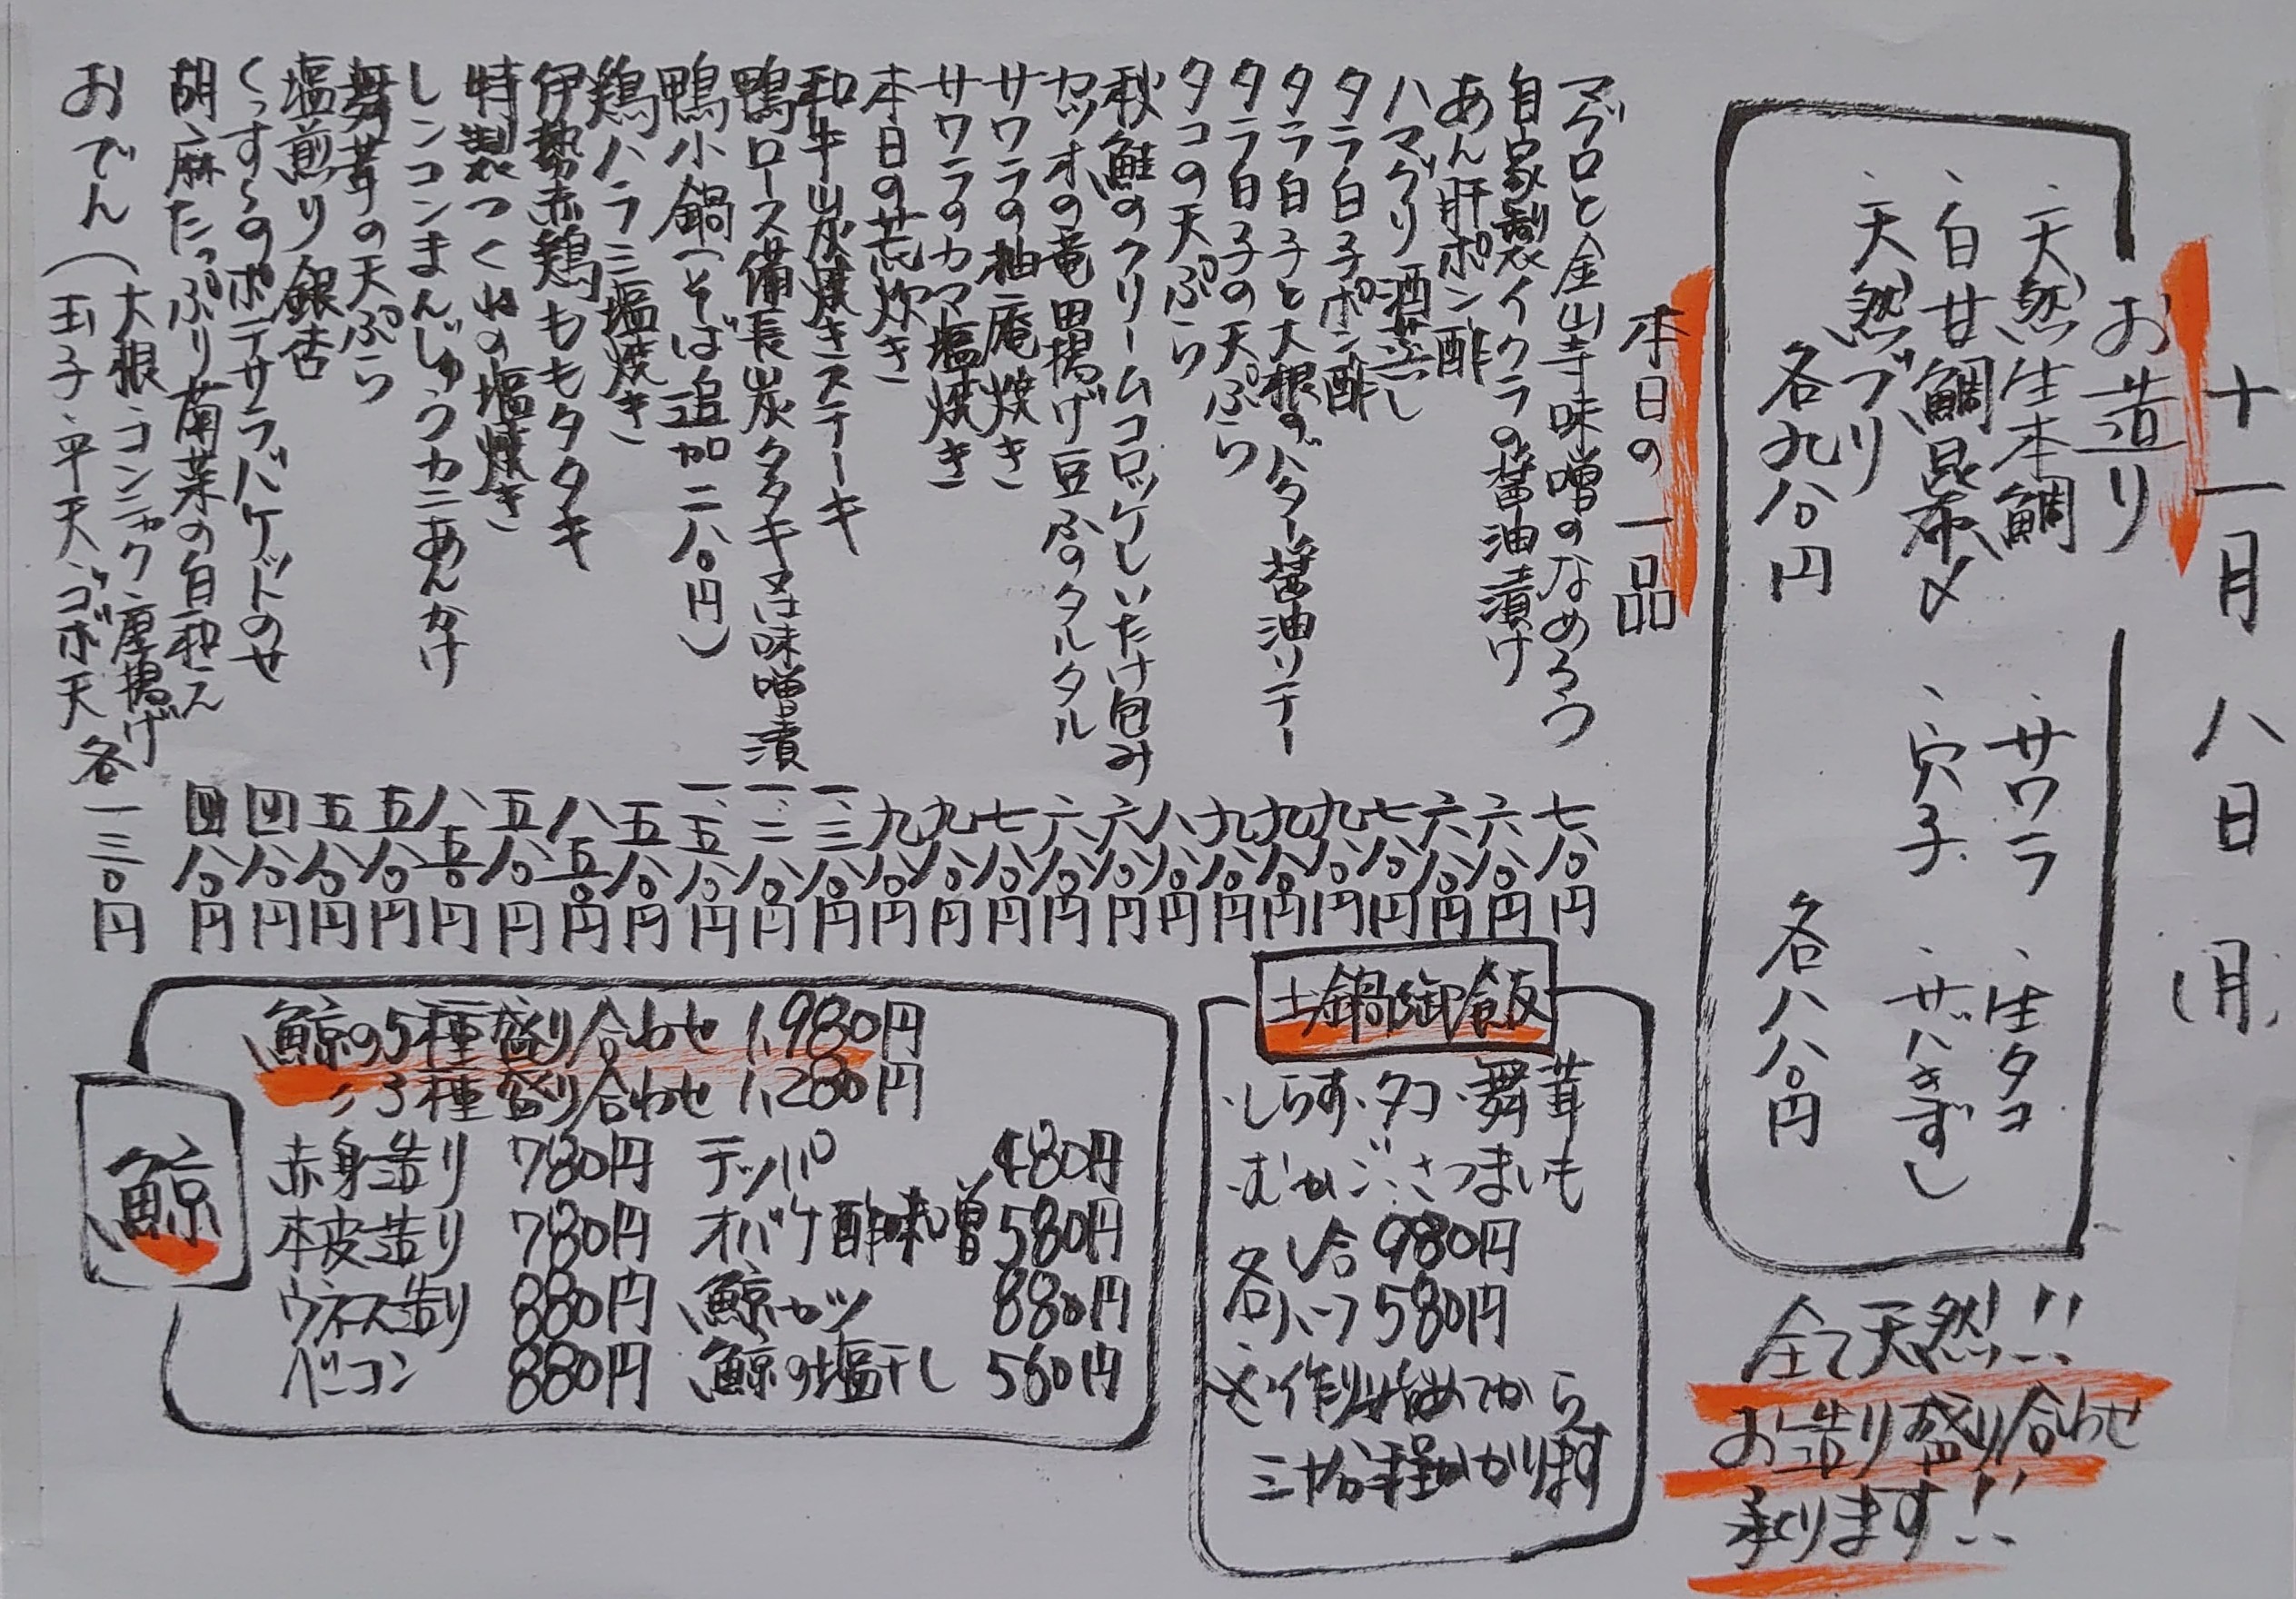 十一月八日(月)
お造り
・天然生本鯛
・サワラ
・生タコ
・白甘鯛昆布〆
・穴子
・サバきずし
・天然ブリ
各九八〇円
各八八〇円
全て天然!!
お造り盛り合わせ
承ります!!
本日の一品
マグロと金山寺味噌のなめろう 七八〇円
自家製イクラの醤油漬け 六八〇円
あん肝ポン酢 六八〇円
ハマグリ酒蒸し 七八〇円
タラ白子ポン酢 九八〇円
タラ白子と大根のバター醤油ソテー 九八〇円
タラ白子の天ぷら 九八〇円
タコの天ぷら 八八〇円
秋鮭のクリームコロッケしいたけ包み 六八〇円
カツオの竜田揚げ豆ふのタルタル 六八〇円
サワラの柚庵焼き 七八〇円
サワラのカマ塩焼き 九八〇円
本日の荒炊き 九八〇円
和牛炭焼きステーキ 一、三八〇円
鴨ロース備長炭タタキ又は味噌漬 一、二八〇円
鴨小鍋(そば追加二八〇円) 一、五八〇円
鶏ハラミ塩焼き 五八〇円
伊勢赤鶏ももタタキ 八五〇円
特製つくねの塩焼き 五八〇円
レンコンまんじゅうカニあんかけ 八五〇円
舞茸の天ぷら 五八〇円
塩煎り銀杏 五八〇円
くっすーのポテサラバケットのせ 四八〇円
胡麻たっぷり菊菜の白和え 四八〇円
おでん(大根・コンニャク・厚揚げ
玉子・平天・ゴボ天 各一三〇円
土鍋御飯
・しらす・タコ・舞茸
・むかご・さつまいも
各一合 980円
各ハーフ 580円
※作り始めてから
三十分程かかります
鯨
鯨の5種盛り合わせ 1,980円
〃3種盛り合わせ 1,280円
赤身造り 780円 テッパ 480円
本皮造り 780円 オバケ酢味噌 580円
ウネス造り 880円 鯨カツ 880円
ベーコン 880円 鯨の塩干し 580円